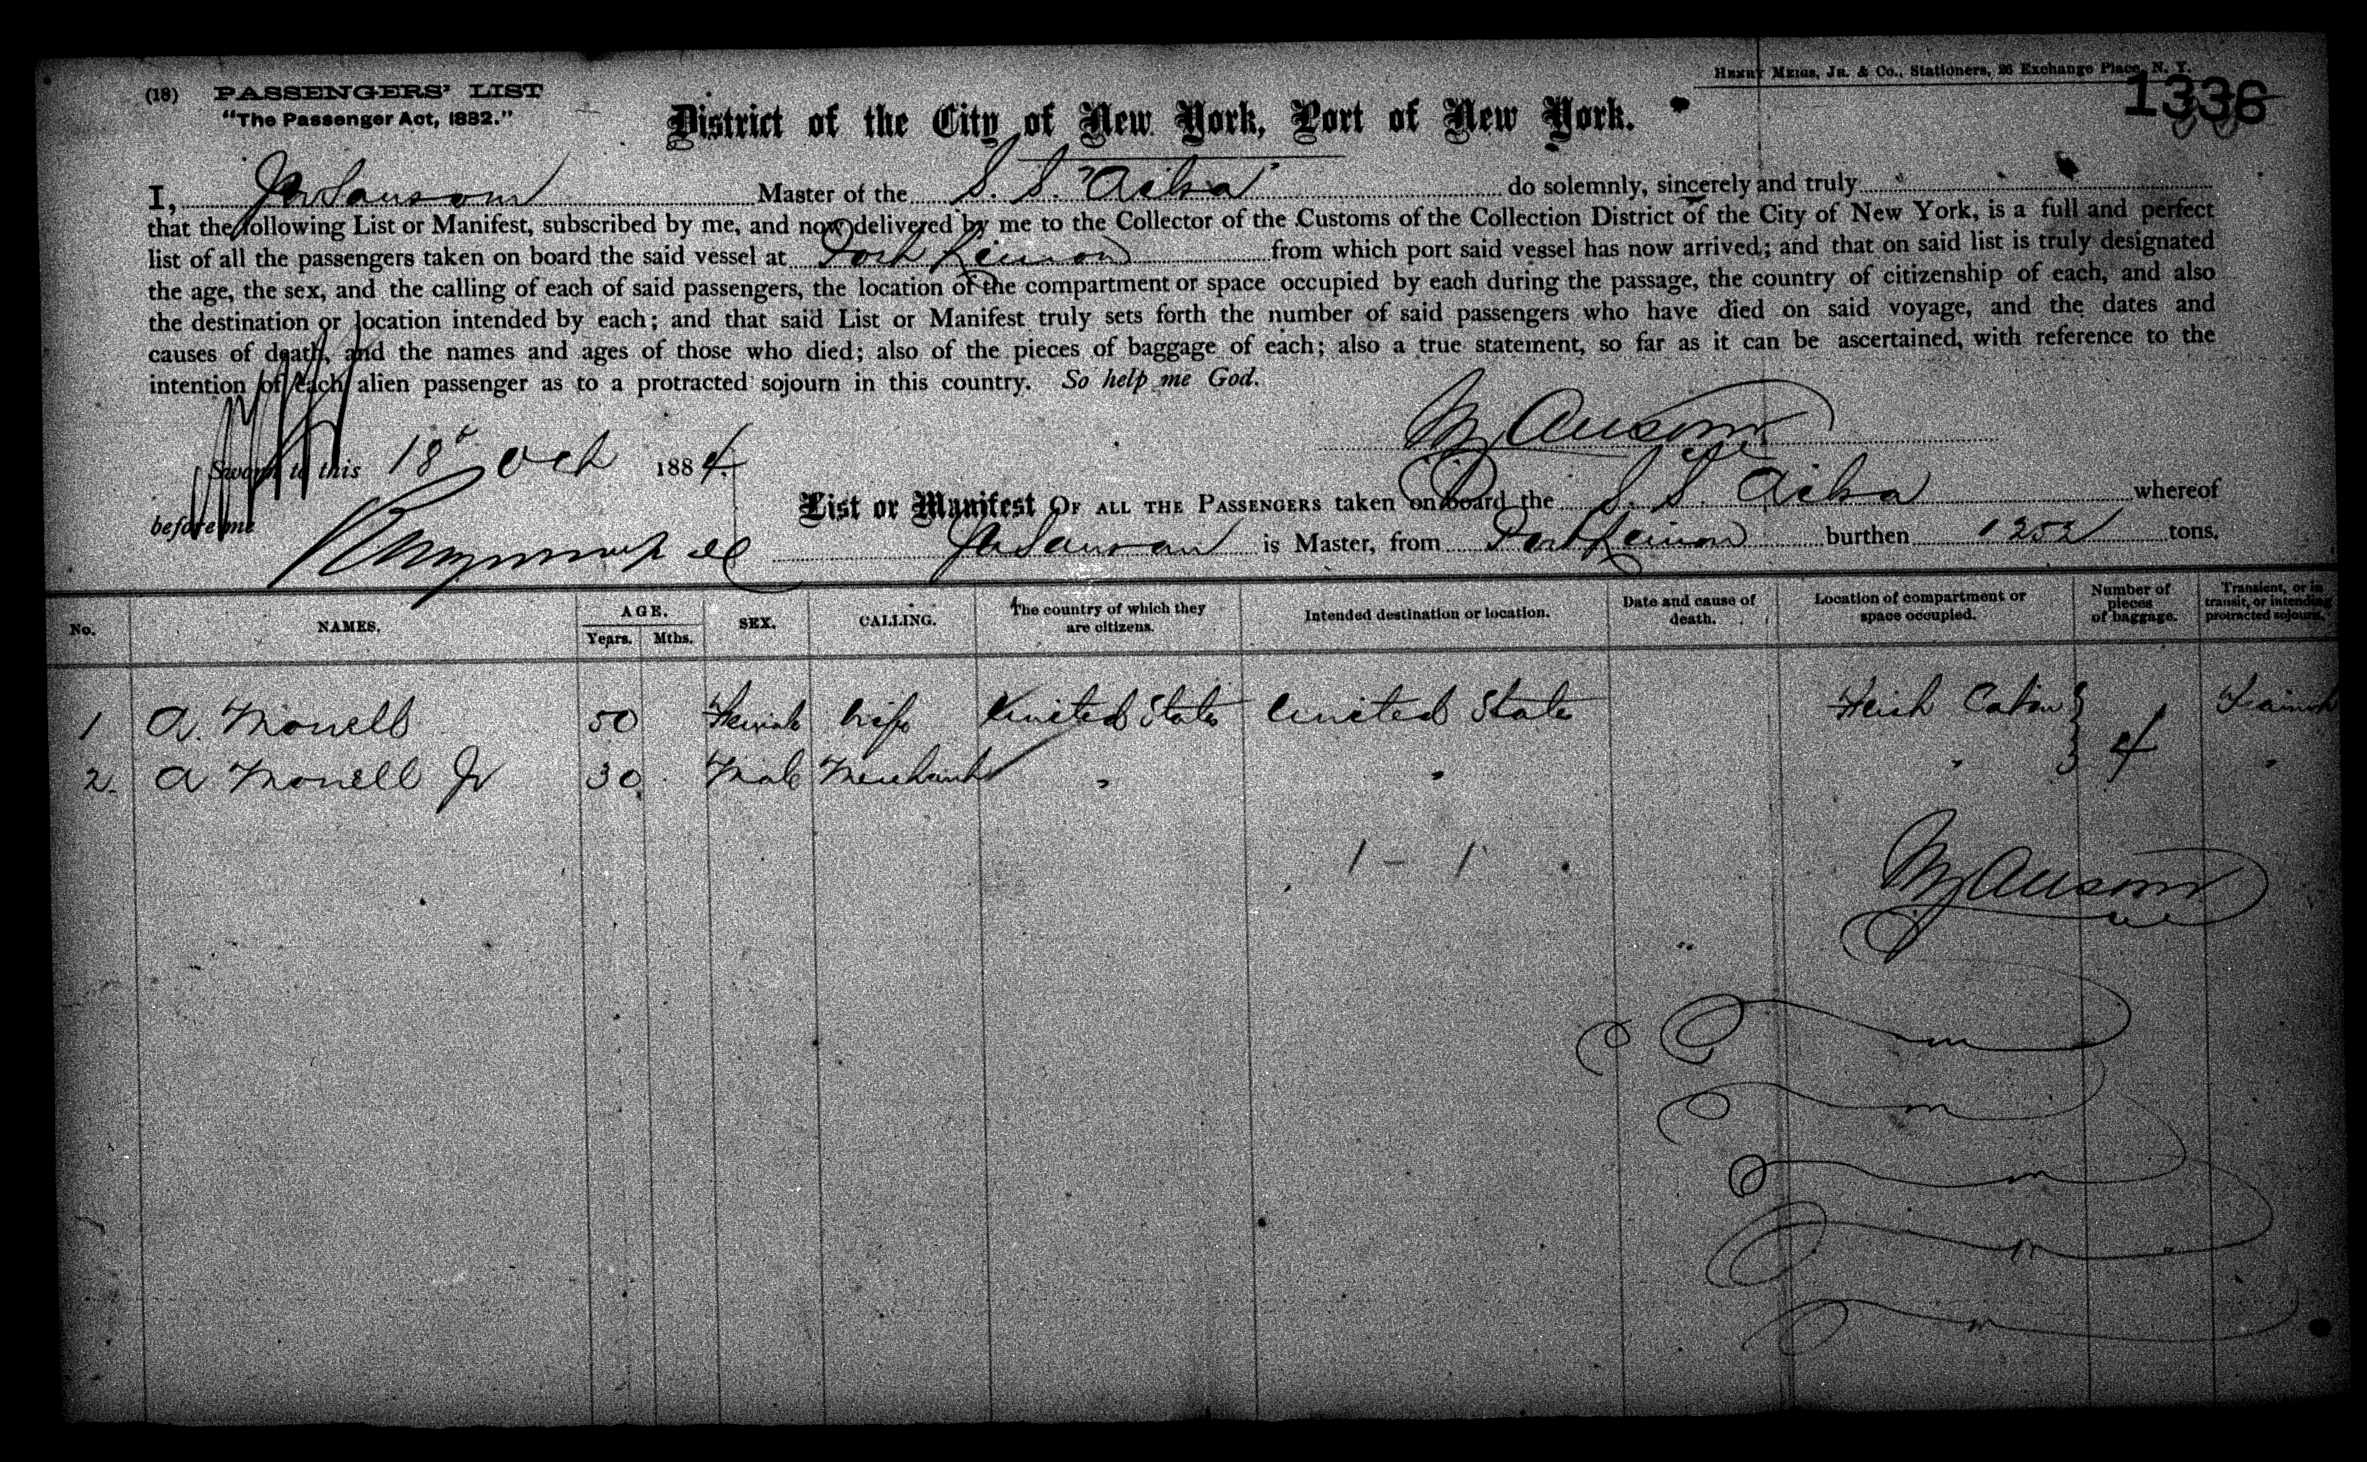 (18) PASSENGERS' LIST
"The Passenger Act, 1882."
HENRY MEIGS, JR. & CO., Stationers, 26 Exchange Place, N. Y.
1336
District of the City of New York, Port of New York.
I, Sansom Master of the S. S. "Ailsa" do solemnly, sincerely and truly
that the following List or Manifest, subscribed by me, and now delivered by me to the Collector of the Customs of the Collection District of the City of New York, is a full and perfect
list of all the passengers taken on board the said vessel at Port Limon from which port said vessel has now arrived; and that on said list is truly designated
the age, the sex, and the calling of each of said passengers, the location of the compartment or space occupied by each during the passage, the country of citizenship of each, and also
the destination or location intended by each; and that said List or Manifest truly sets forth the number of said passengers who have died on said voyage, and the dates and
causes of death, and the names and ages of those who died; also of the pieces of baggage of each; also a true statement, so far as it can be ascertained, with reference to the
intention of each alien passenger as to a protracted sojourn in this country. So help me God.
Sworn to this 18 Oct 1884.
before me
List or Manifest OF ALL THE PASSENGERS taken on board the S. S. Ailsa whereof
Sansom is Master, from Port Limon burthen 1252 tons.
No. NAMES. AGE. Years. Mths. SEX. CALLING. The country of which they are citizens. Intended destination or location. Date and cause of death. Location of compartment or space occupied. Number of pieces of baggage. Transient, or in transit, or intending protracted sojourn.
1 A. Monell 50 Female Wife United States United States Cabin } Transit
2. A Monell Jr 30 Male Merchant " " " } 4 "
1 - 1